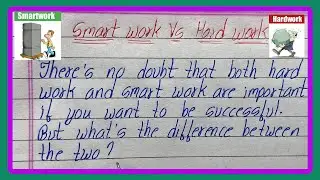 Smartwork
Hardwork
Smart work Vs Hard work
There's no doubt that both hard
work and smart work are important
if you want to be successful.
But what's the difference between
the two?